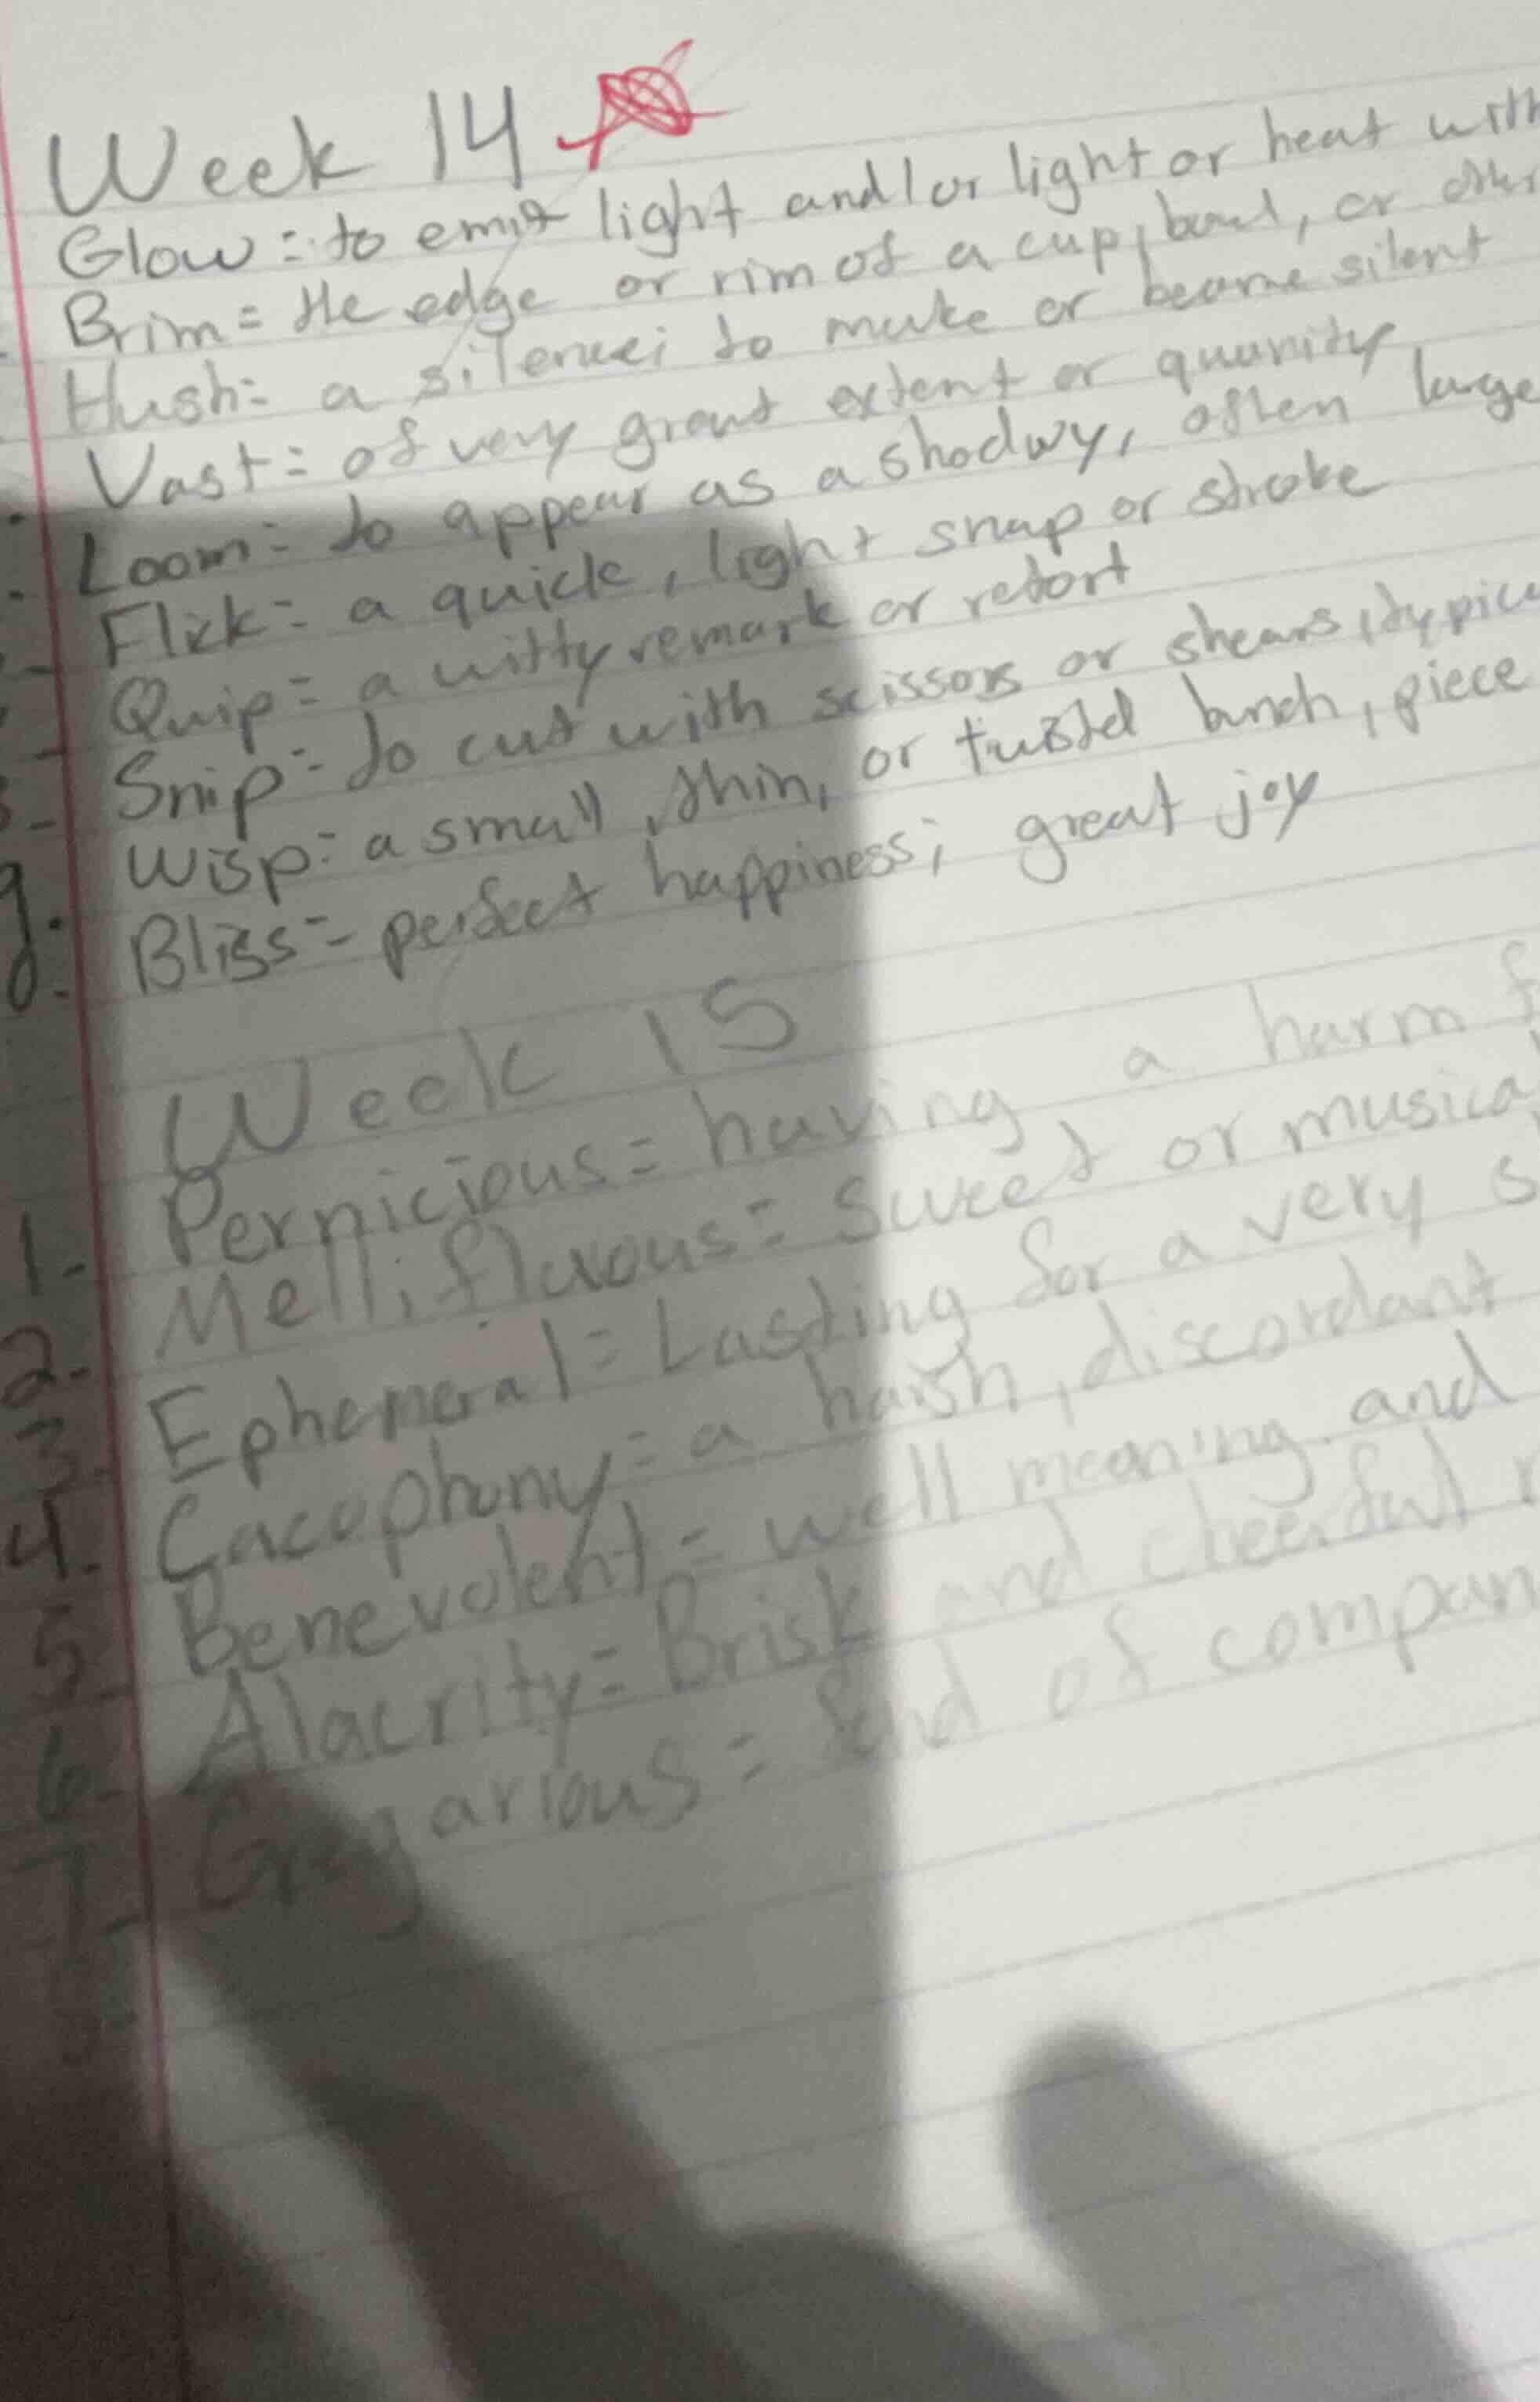 Week 14
Glow = to emit light and/or light or heat with
Brim = the edge or rim of a cup, bowl, or other
Hush = a silence; to make or become silent
Vast = of very great extent or quanity
Loom = to appear as a shodwy, often large
Flick = a quick, light snap or stroke
Quip = a witty remark or retort
Snip = to cut with scissors or shears, typica
9. Wisp = a small, thin, or twisted bunch, piece
Bliss = perfect happiness; great joy
Week 15
1. Pernicious = having a harm f
2. Mellifluous = Sweet or musica
3. Ephemeral = Lasting for a very s
4. Cacophony = a harsh, discordant
5. Benevolent = well meaning and
6. Alacrity = Brisk and cheerful r
7. Gregarious = fond of compan